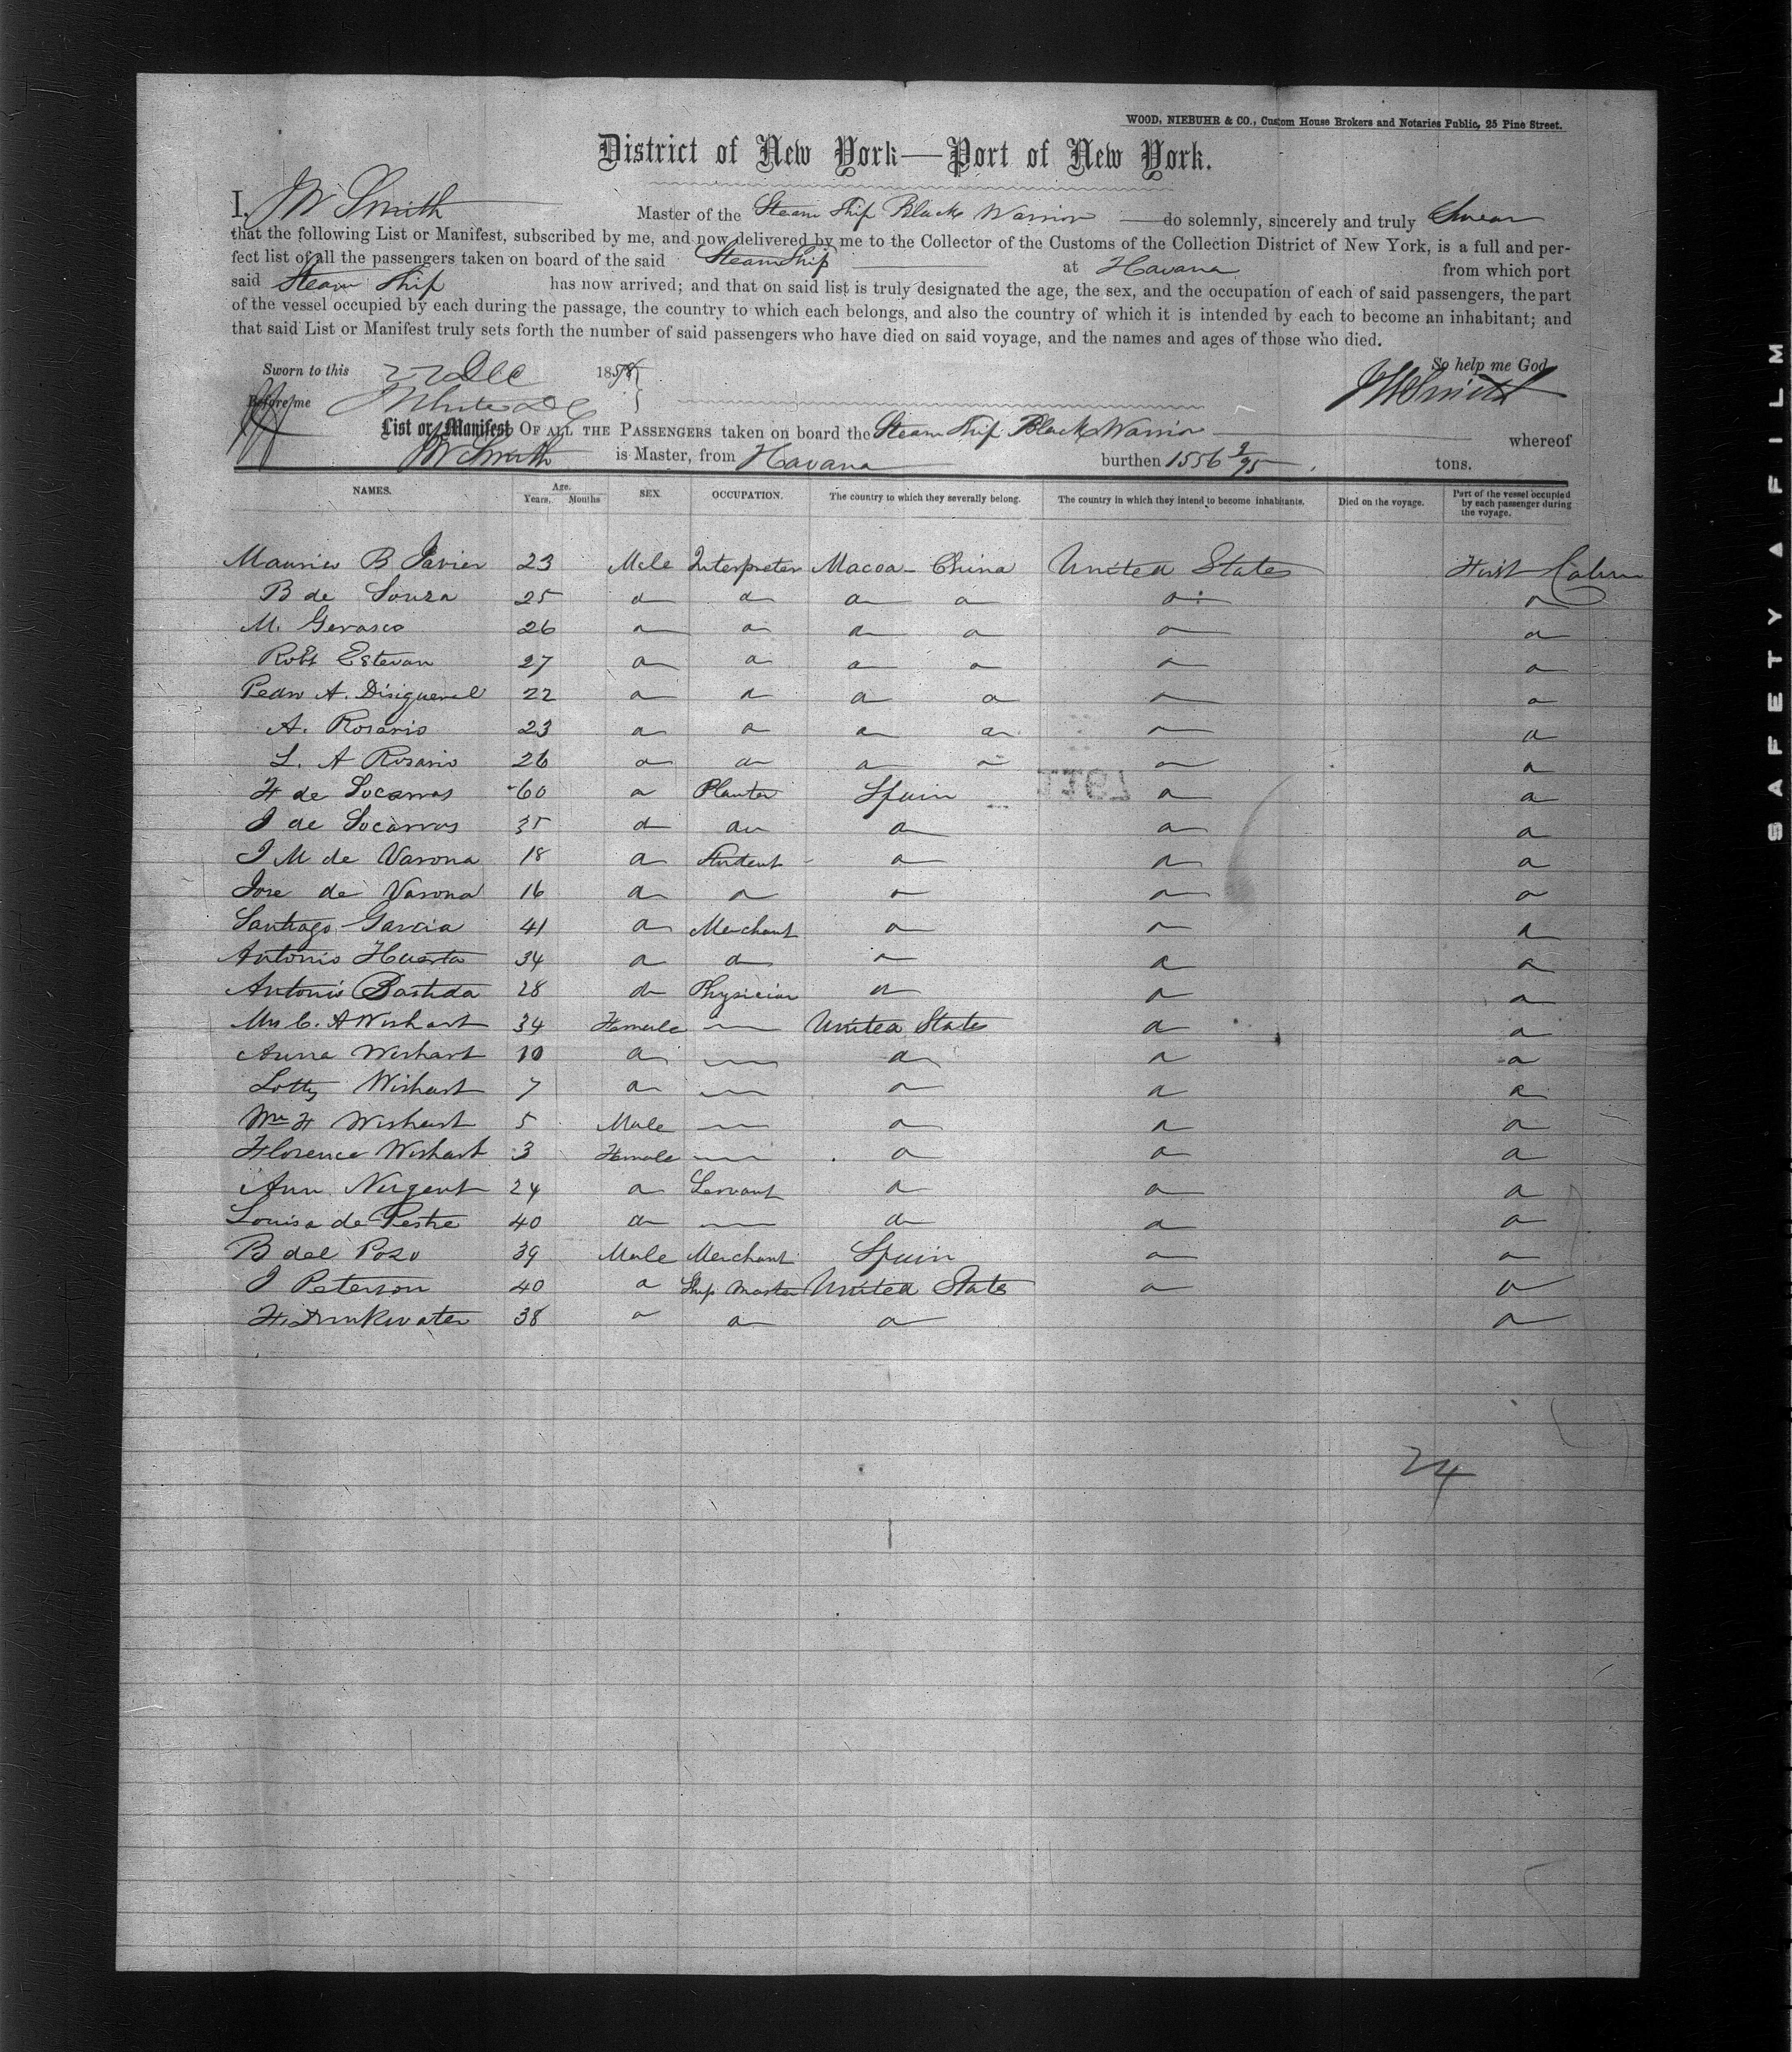 WOOD, NIEBUHR & CO., Custom House Brokers and Notaries Public, 25 Pine Street.
District of New York—Port of New York.
I, J W Smith Master of the Steam Ship Black Warrior do solemnly, sincerely and truly Swear
that the following List or Manifest, subscribed by me, and now delivered by me to the Collector of the Customs of the Collection District of New York, is a full and per-
fect list of all the passengers taken on board of the said Steam Ship at Havana from which port
said Steam Ship has now arrived; and that on said list is truly designated the age, the sex, and the occupation of each of said passengers, the part
of the vessel occupied by each during the passage, the country to which each belongs, and also the country of which it is intended by each to become an inhabitant; and
that said List or Manifest truly sets forth the number of said passengers who have died on said voyage, and the names and ages of those who died.
So help me God
Sworn to this 22 Dec 1858
J W Smith
Before me J White
List or Manifest OF ALL THE PASSENGERS taken on board the Steam Ship Black Warrior whereof
J W Smith is Master, from Havana burthen 1556 9/95 tons.
NAMES. Age. Years. Months SEX. OCCUPATION. The country to which they severally belong. The country in which they intend to become inhabitants. Died on the voyage. Part of the vessel occupied by each passenger during the voyage.
Maurice B Xavier 23 Male Interpreter Macoa China United States First Cabin
B de Souza 25 a a a a a a
M. Gervasco 26 a a a a a a
Robt Estevan 27 a a a a a a
Pedro A. 22 a a a a a a
A. Rosario 23 a a a a a a
L. A Rosario 26 a a a a a a
F de Socarras 60 a Planter Spain a a
J de Socarras 35 a a a a a
J M de Varona 18 a Student a a a
Jose de Varona 16 a a a a a
Santiago Garcia 41 a Merchant a a a
Antonio Huerta 34 a a a a a
Antonio Bastida 28 a Physician a a a
Mrs C. A Wishart 34 Female — United States a a
Anna Wishart 10 a — a a a
Lotty Wishart 7 a — a a a
Wm H Wishart 5 Male — a a a
Florence Wishart 3 Female — a a a
Ann Nugent 24 a Servant a a a
Louisa de Pestre 40 a — a a a
B del Pozo 39 Male Merchant Spain a a
J Peterson 40 a Ship Master United States a a
H. Drinkwater 38 a a a a
24
SAFETY FILM